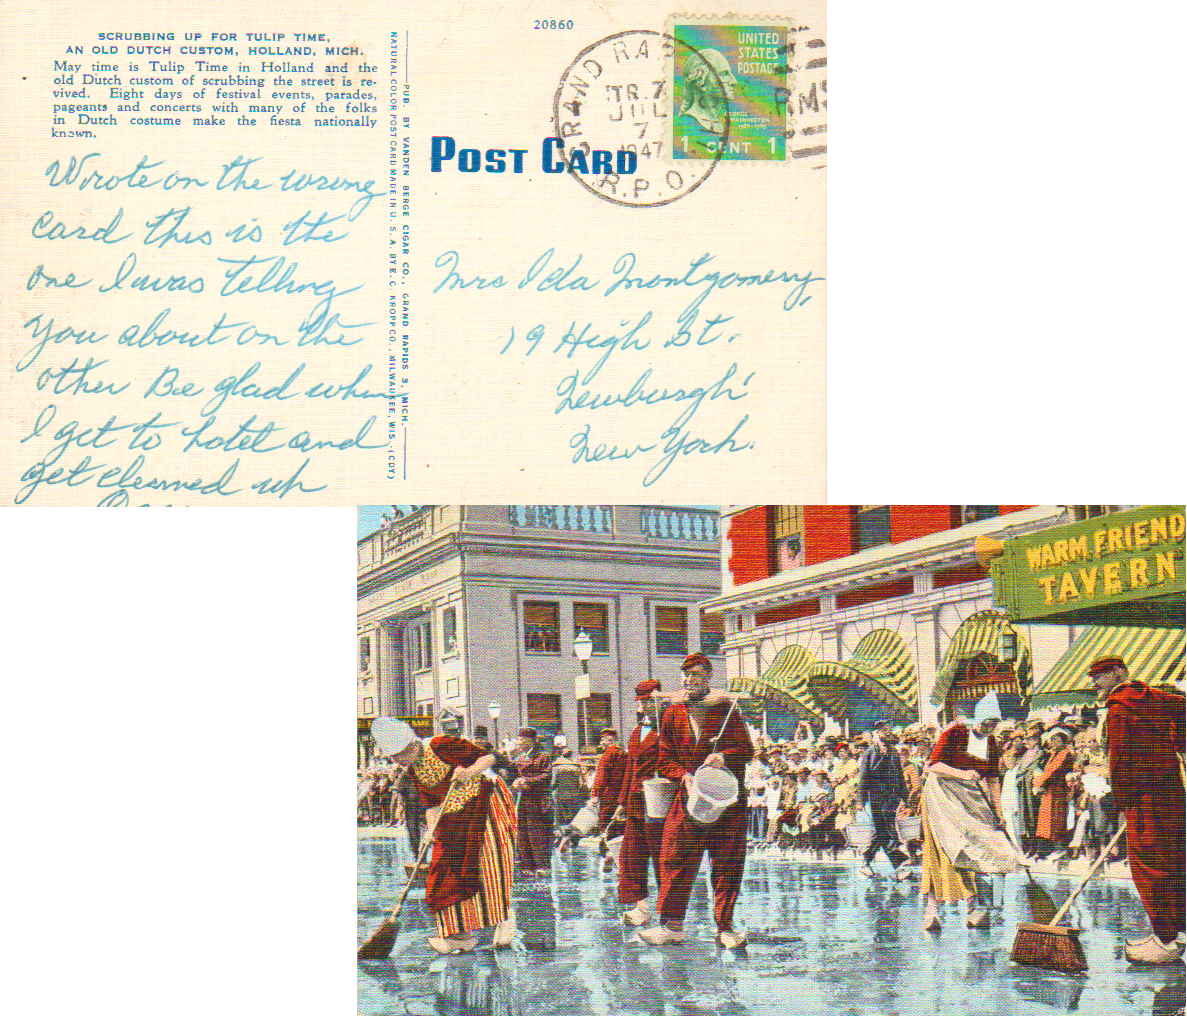 SCRUBBING UP FOR TULIP TIME,
AN OLD DUTCH CUSTOM, HOLLAND, MICH.
May time is Tulip Time in Holland and the
old Dutch custom of scrubbing the street is re-
vived. Eight days of festival events, parades,
pageants and concerts with many of the folks
in Dutch costume make the fiesta nationally
known.
Wrote on the wrong
card this is the
one I was telling
you about on the
other Be glad when
I get to hotel and
get cleaned up
NATURAL COLOR POST CARD MADE IN U. S. A. BY E. C. KROPP CO., MILWAUKEE, WIS. (CDY)
PUB. BY VANDEN BERGE CIGAR CO., GRAND RAPIDS 3, MICH.
20860
POST CARD
GRAND RAP
TR.7
JUL
7
1947
R.P.O.
RMS
UNITED
STATES
POSTAGE
GEORGE
WASHINGTON
1 CENT 1
Mrs Ida Montgomery
19 High St.
Newburgh
New York.
WARM FRIEND
TAVERN